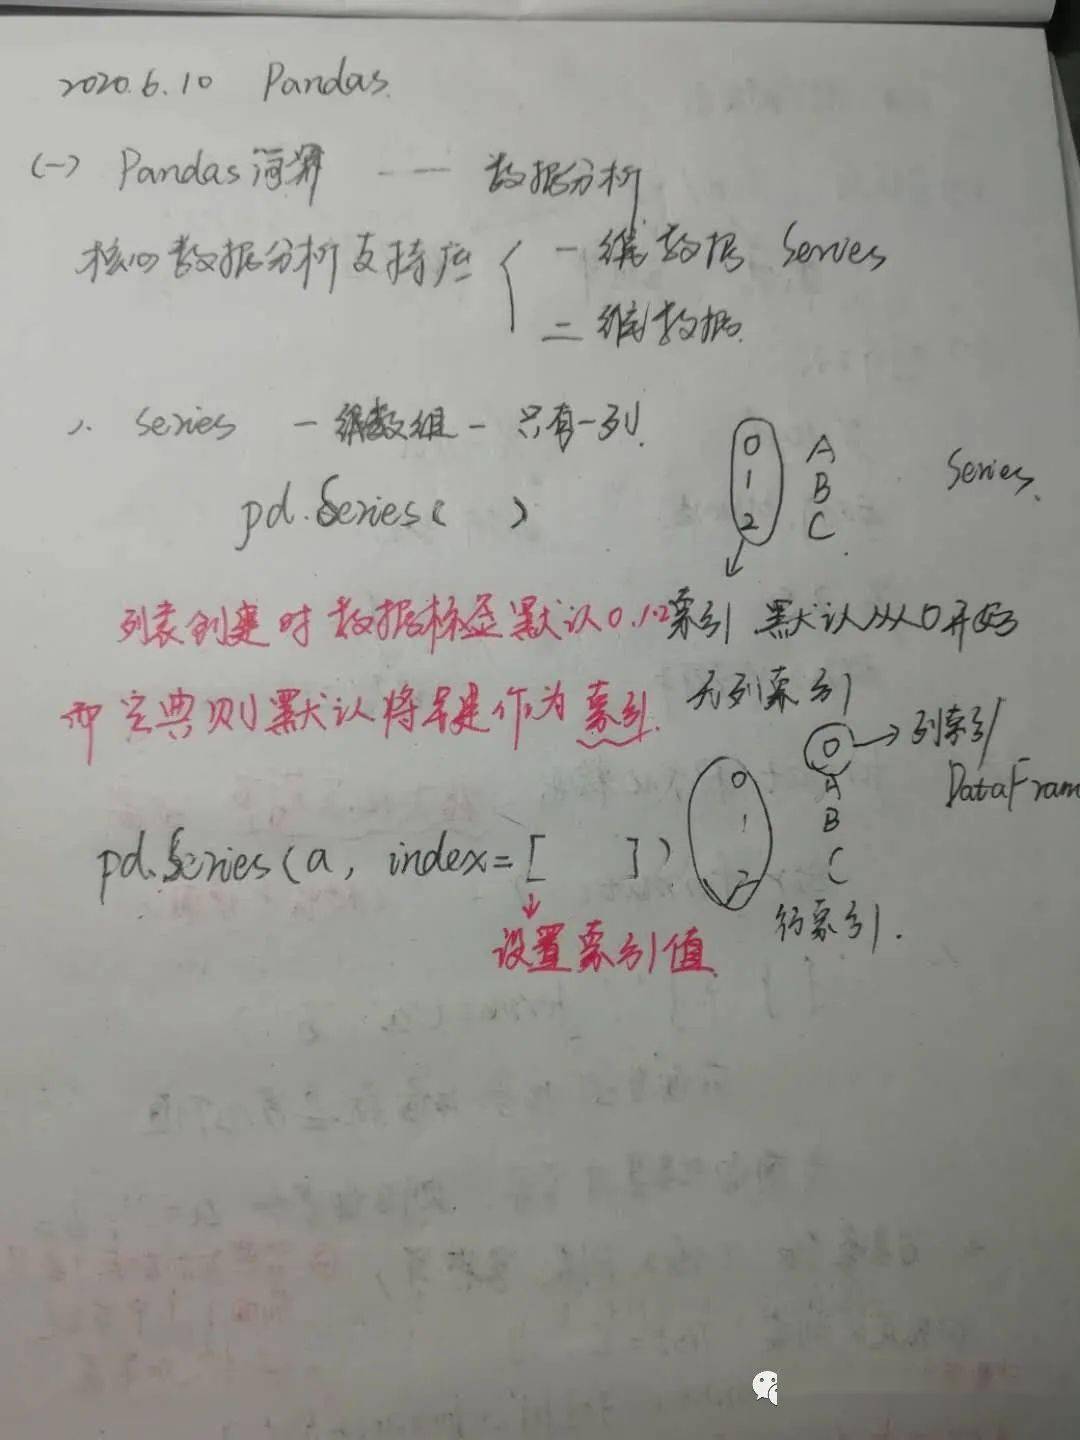 2020.6.10 Pandas.
(一) Pandas 简介 —— 数据分析
核心数据分析支持库 { 一维数据 Series
二维数据.
1. Series 一维数组 - 只有一列.
pd.Series( )
0 A
1 B
2 C
Series.
列表创建时数据标签默认0.1.2
索引 默认从0开始
无列索引
而字典则默认将键作为索引.
0 → 列索引
DataFram
0 A
1 B
2 C
行索引.
pd.Series(a, index=[ ])
设置索引值